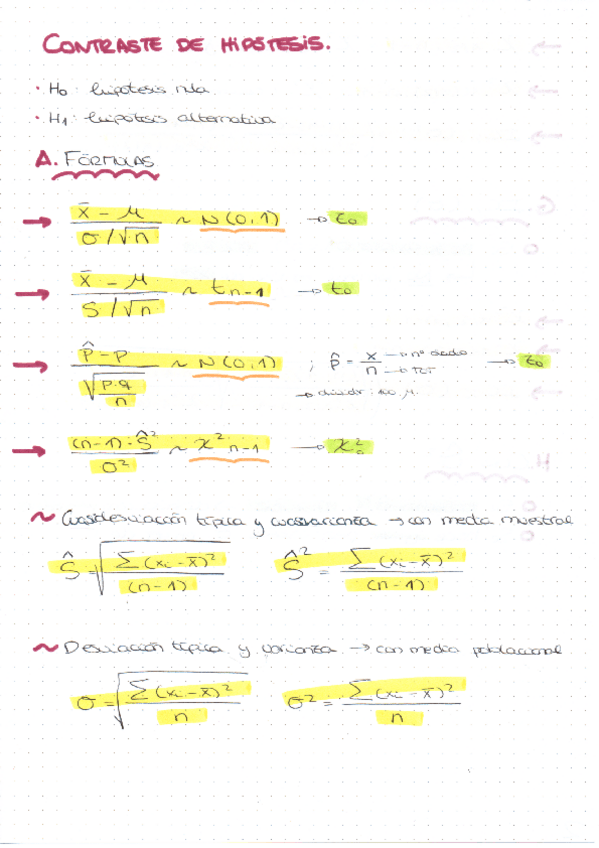 CONTRASTE DE HIPÓTESIS.
· H₀: hipótesis nula
· H₁: hipótesis alternativa
A. FÓRMULAS
→ (x̄ - μ) / (σ/√n) ~ N(0,1) → t₀
→ (x̄ - μ) / (S/√n) ~ tₙ₋₁ → t₀
→ (p̂ - p) / √(p·q / n) ~ N(0,1) ; p̂ = x/n → nº dado → t₀
(n-1)·Ŝ² / σ² ~ χ²ₙ₋₁ → χ²₀
~ Cuasidesviación típica y cuasivarianza → con media muestral
Ŝ = √(∑(xᵢ - x̄)² / (n-1)) Ŝ² = ∑(xᵢ - x̄)² / (n-1)
~ Desviación típica y varianza → con media poblacional
σ = √(∑(xᵢ - x̄)² / n) σ² = ∑(xᵢ - x̄)² / n